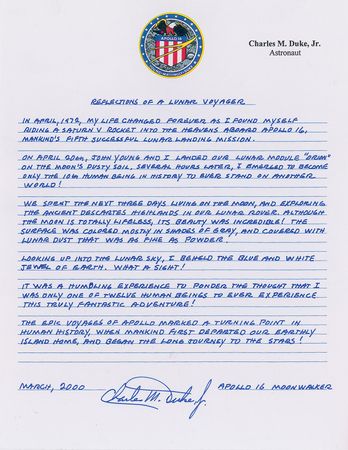 APOLLO 16
Charles M. Duke, Jr.
Astronaut
REFLECTIONS OF A LUNAR VOYAGER
IN APRIL, 1972, MY LIFE CHANGED FOREVER AS I FOUND MYSELF
RIDING A SATURN V ROCKET INTO THE HEAVENS ABOARD APOLLO 16,
MANKIND'S FIFTH SUCCESSFUL LUNAR LANDING MISSION.
ON APRIL 20th, JOHN YOUNG AND I LANDED OUR LUNAR MODULE "ORION"
ON THE MOON'S DUSTY SOIL. SEVERAL HOURS LATER, I EMERGED TO BECOME
ONLY THE 10th HUMAN BEING IN HISTORY TO EVER STAND ON ANOTHER
WORLD!
WE SPENT THE NEXT THREE DAYS LIVING ON THE MOON, AND EXPLORING
THE ANCIENT DESCARTES HIGHLANDS IN OUR LUNAR ROVER. ALTHOUGH
THE MOON IS TOTALLY LIFELESS, ITS BEAUTY WAS INCREDIBLE! THE
SURFACE WAS COLORED MOSTLY IN SHADES OF GRAY, AND COVERED WITH
LUNAR DUST THAT WAS AS FINE AS POWDER.
LOOKING UP INTO THE LUNAR SKY, I BEHELD THE BLUE AND WHITE
JEWEL OF EARTH. WHAT A SIGHT!
IT WAS A HUMBLING EXPERIENCE TO PONDER THE THOUGHT THAT I
WAS ONLY ONE OF TWELVE HUMAN BEINGS TO EVER EXPERIENCE
THIS TRULY FANTASTIC ADVENTURE!
THE EPIC VOYAGES OF APOLLO MARKED A TURNING POINT IN
HUMAN HISTORY, WHEN MANKIND FIRST DEPARTED OUR EARTHLY
ISLAND HOME, AND BEGAN THE LONG JOURNEY TO THE STARS!
MARCH, 2000
Charles M. Duke Jr.
APOLLO 16 MOONWALKER